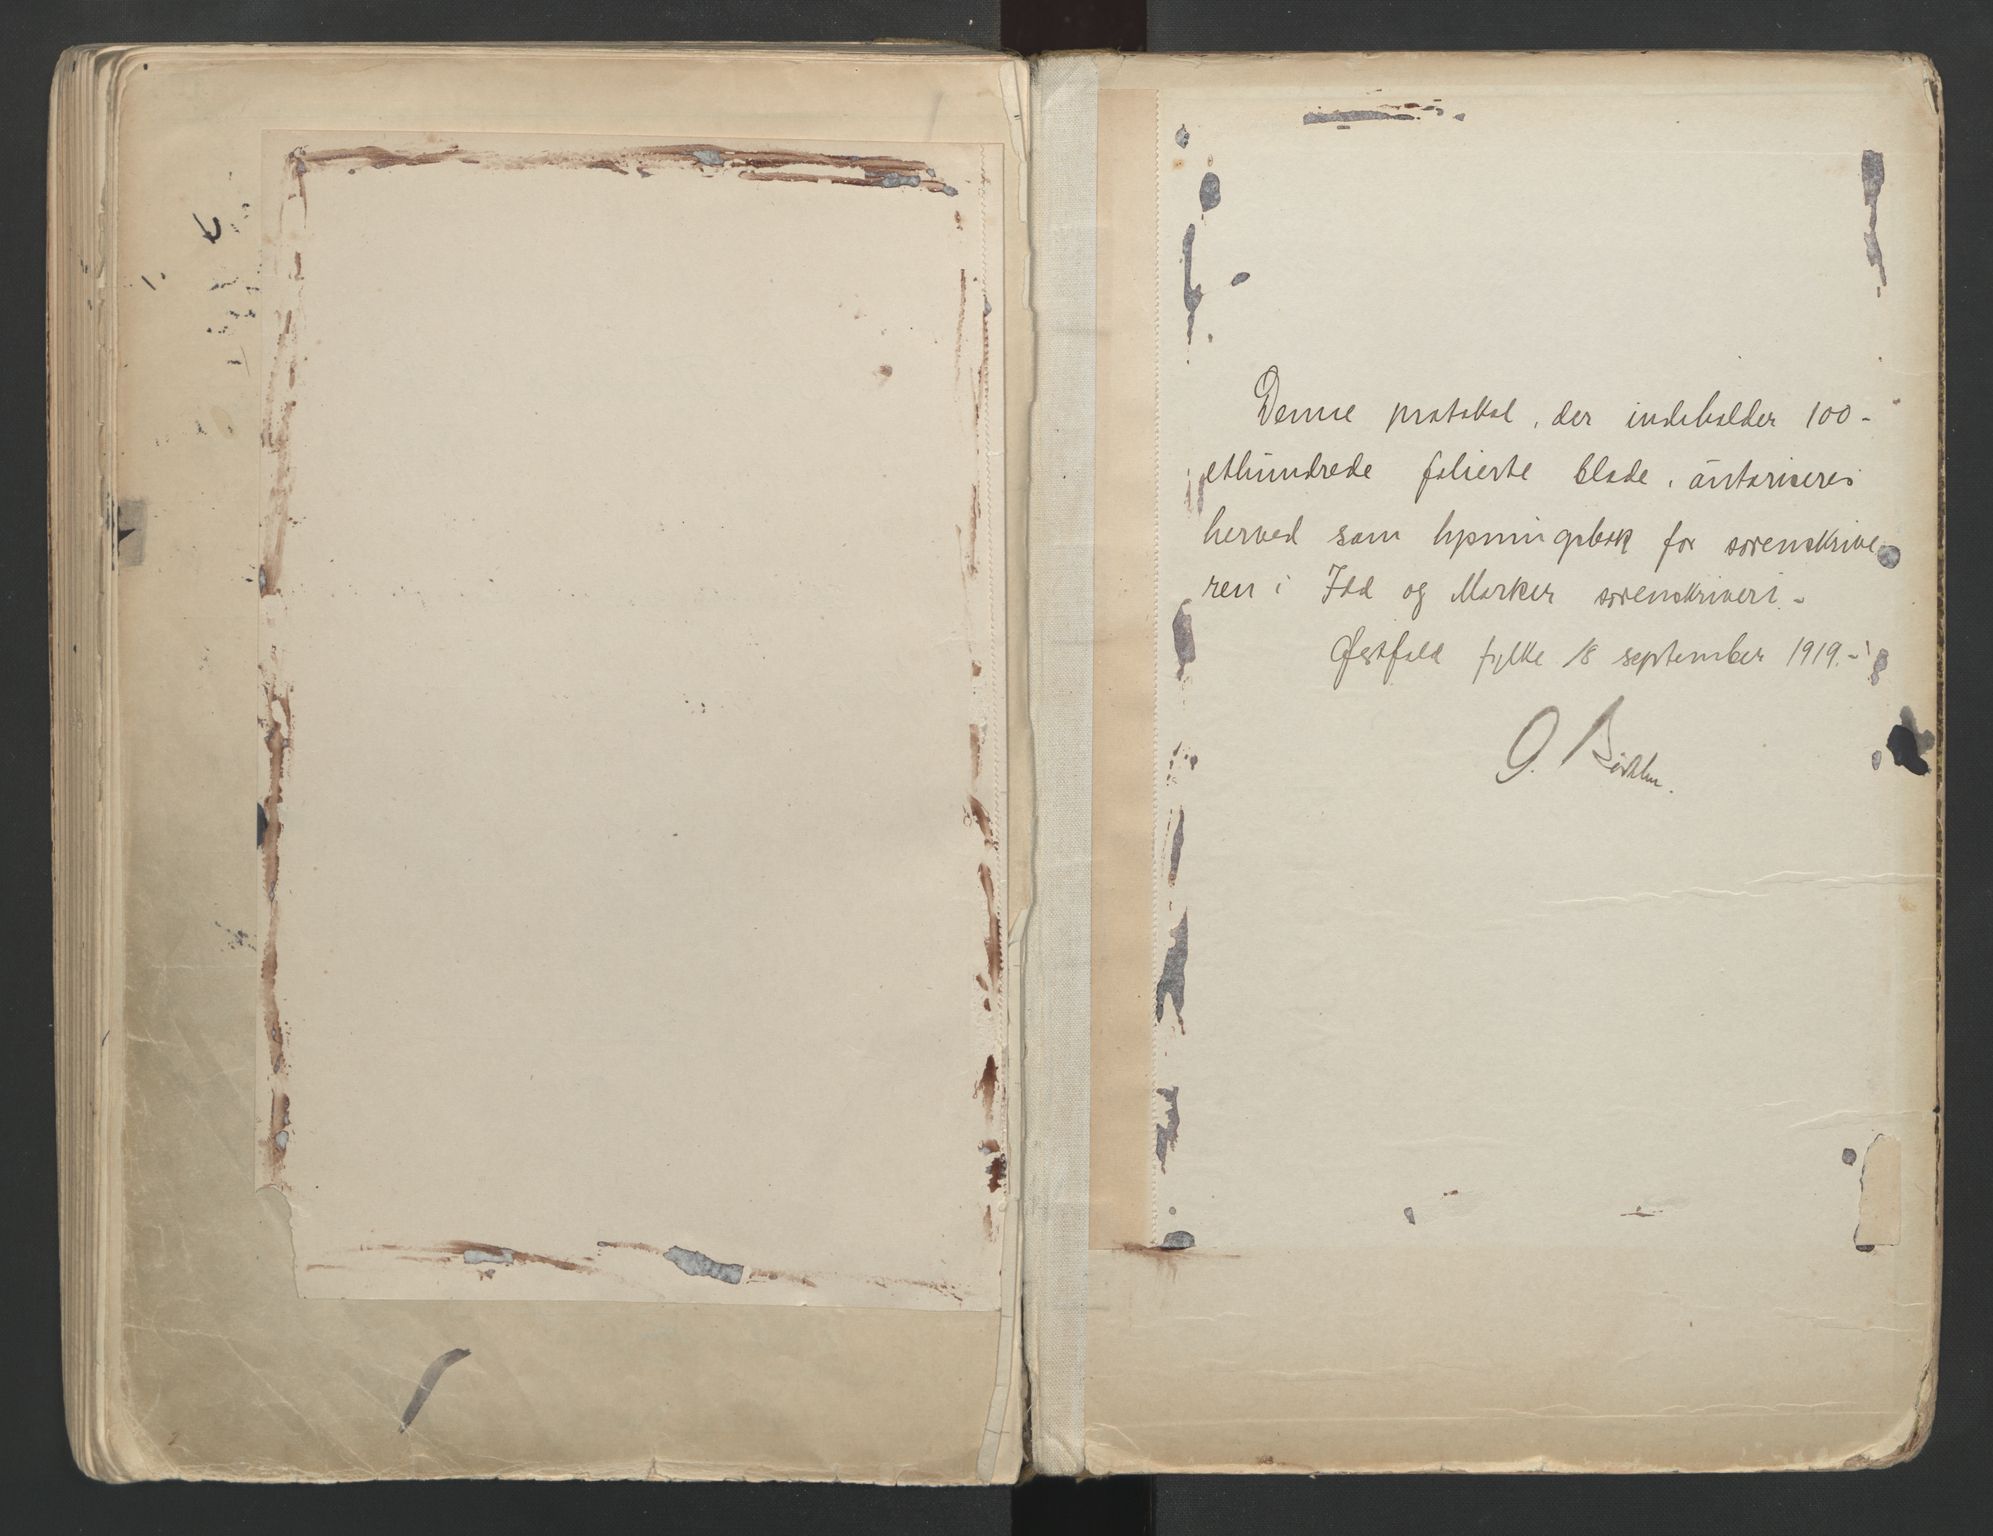 Denne protokol, der indeholder 100-
ethundrede folierte blade, autoriseres
herved som lysningsbok for sorenskrive
ren i Idd og Marker sorenskriveri.-
Østfold fylke 18 september 1919.-
G.